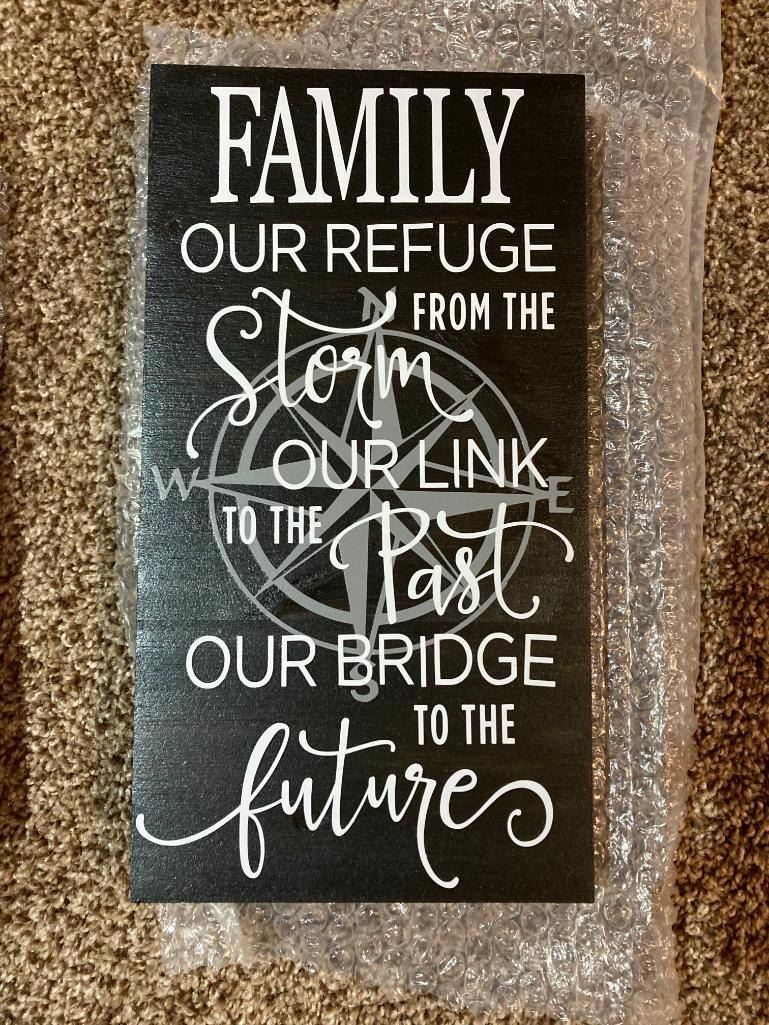 FAMILY
OUR REFUGE
FROM THE
Storm
N
OUR LINK
W E
TO THE
Past
OUR BRIDGE
S
TO THE
future